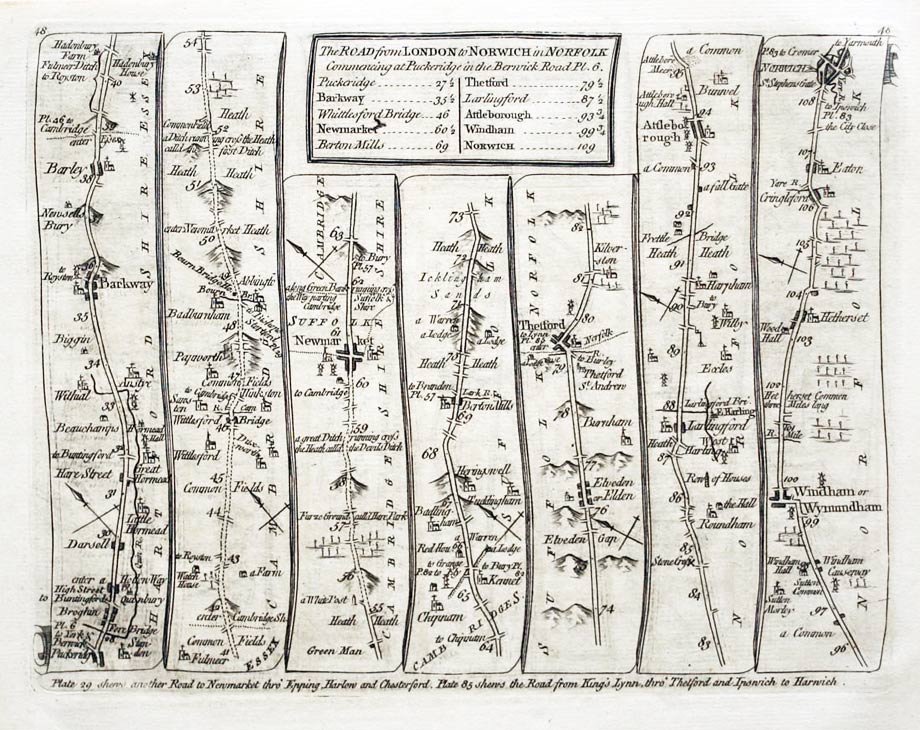 48
46
The ROAD from LONDON to NORWICH in NORFOLK
Commencing at Puckeridge in the Berwick Road Pl. 6.
Puckeridge 27½
Barkway 35½
Whittlesford Bridge 46
Newmarket 60½
Berton Mills 69
Thetford 79½
Larlingford 87½
Attleborough 93¾
Windham 99¾
NORWICH 109
Hadenbury
Farm
Fulmer Ditch
to Royston
Hadenbury
House
40
Pl. 46 to
Cambridge
enter Essex
Barley
38
Newsells
Bury
36
to
Royston
Barkway
35
Biggin
34
Anstye
Withial
33
Beauchamps
Hormead
Hall
to Buntingford
Hare Street
Great
Hormead
31
Little
Hormead
30
Darsell
enter a
High Street
to
Buntingford
Broghin
Pl. 6
to York &
Berwick
Puckeridg
Ford Bridge
Stan
don
HARTFORDSHIRE
ESSEX
54
53
Heath
52
a Ditch running cross the Heath
call'd
foss Ditch
Heath
Heath
51
enter Newmarket Heath
50
Bourn Bridge
Abbington
Badburnham
48
Papworth
47
Common Fields
Saws
ton
Hinkston
R. Cam
Wittlesford
Bridge
46
Dux
worth
Wittlesford
45
Common Fields
44
to Royston
43
Water
House
a Farm
42
enter Cambridge Sh.
Common Fields
Fulmeer
ESSEX
CAMBRIDGSHIRE
CAMBRIDGE
63
to Bury
Pl. 57
62
along Green Bank running cross
the Way parting Suffolk &
Cambridge Shire
SUFFOLKE
Newmarket
60
to Cambridge
59
a great Ditch running cross
the Heath call'd the Devils Ditch
58
Furze Ground call'd Hare Park
57
56
a White Post
55
Heath
Heath
Green Man
CAMBRIDGESHIRE
73
Heath
Heath
72
Icklingham
Sands
71
a Warren
a Lodge
a Lodge
70
Heath
Heath
to Brandon
Pl. 57
Lark R.
Berton Mills
69
68
Heringswell
67
Tuddingham
Badling
ham
a Warren
Red House
a Lodge
to Grange
to Bury Pl.
Kennet
65
Chipnam
to Chipnam
64
CAMBRIDGES
82
Kilver-
ston
81
80
Thetford
to Lynn
Pl. 85
enter
Norfolk
79
R.
to Burley
Thetford
St. Andrews
78
Barnham
77
Elveden
or Elden
76
Elveden Gap
74
SUFFOLK
NORFOLK
a Common
Attlebor
Meer
95
Bunwel
Attlebor
ough Hall
94
Attlebo
rough
a Common
93
a fall Gate
92
Frettle Bridge
Heath
Heath
91
Harpham
to
Bury
90
Wilby
89
Eccles
Larlingford Bri.
88
E. Harling
Larlingford
Heath
87
West
Harling
Row of Houses
86
the Hall
Roundham
85
Stone Cross
84
83
NORFOLK
Pl. 83 to Cromer
to Yarmouth
NORWICH
St Stephens Gate
108
to Ipswich
Pl. 83
the City Close
107
Eaton
Yare R.
Cringleford
106
105
104
Hetherset
Woods
Hall
103
102
Hetherset Common
three Miles long
100
Windham or
Wymundham
99
Windham
Hall
Windham
Causeway
Sutton
Common
Sutton
Morley
97
a Common
96
NORFOLK
Plate 29 shews another Road to Newmarket thro' Epping Harlow and Chesterford. Plate 85 shews the Road from King's Lynn, thro' Thetford and Ipswich to Harwich.